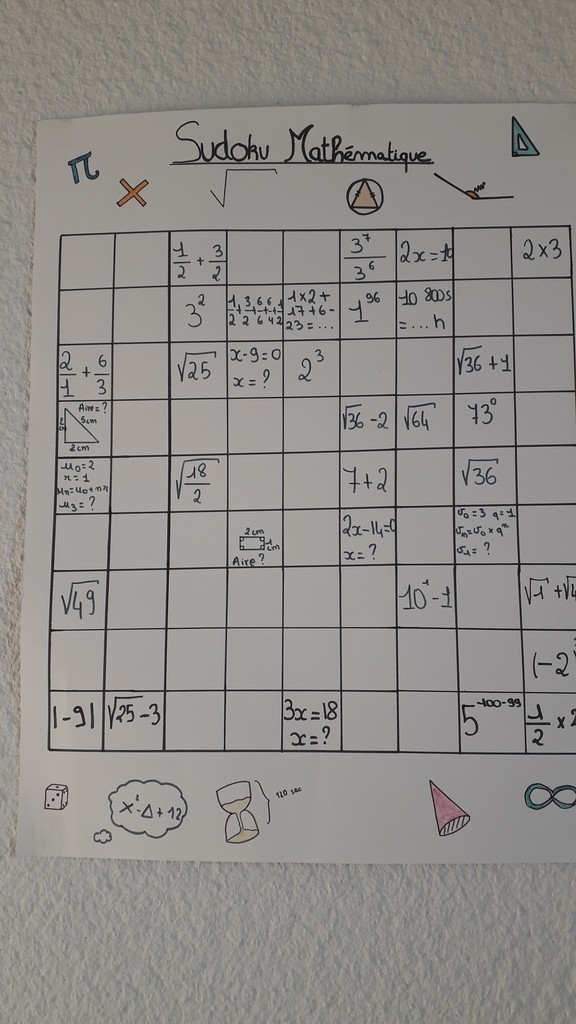 Sudoku Mathématique
π
×
√
1/2 + 3/2
3⁷/3⁶
2x = 10
2 × 3
3²
1×2+
17+6-
23=...
1⁹⁶
10 800s
=...h
2/1 + 6/3
√25
x-9=0
x=?
2³
√36 + 1
Aire=?
5cm
2cm
√36 - 2
√64
73⁰
u₀=2
r=1
uₙ=u₀+nr
u₃=?
√(18/2)
7+2
√36
2cm
1cm
Aire?
2x-14=0
x=?
v₀=3 q=1
vₙ=v₀×qⁿ
v₁=?
√49
10¹-1
|-9|
√25-3
3x=18
x=?
5
1/2 ×
x²-Δ+12
120 sec
∞